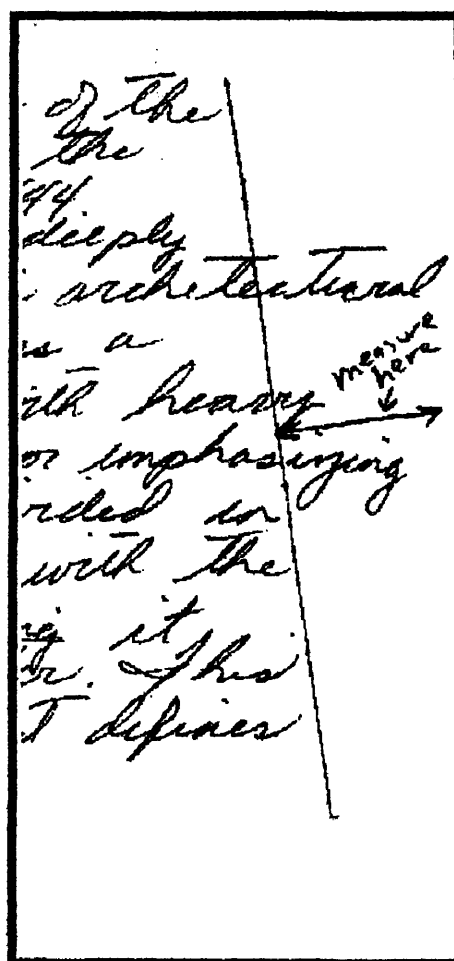 of the
the
44
deeply
architectural
s a
ith heavy
or imphasizing
rded in
with the
ng it
or. This
t defines
measure
here